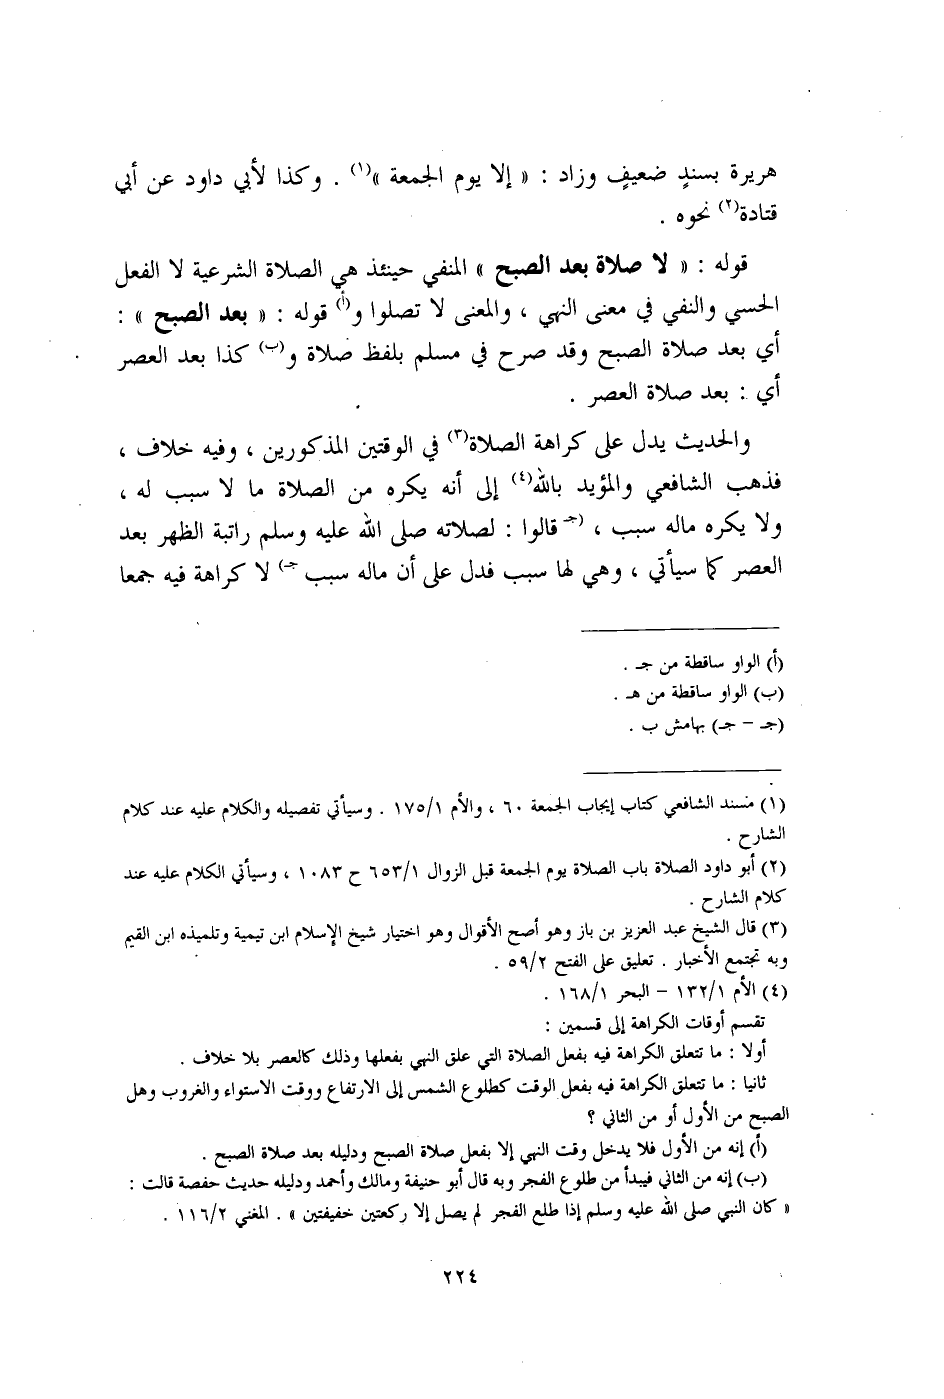 هريرة بسندٍ ضعيفٍ وزاد : « إلا يوم الجمعة »(١) . وكذا لأبي داود عن أبي
قتادة(٢) نحوه .
قوله : « لا صلاة بعد الصبح » المنفي حينئذ هي الصلاة الشرعية لا الفعل
الحسي والنفي في معنى النهي ، والمعنى لا تصلوا و(أ) قوله : « بعد الصبح » :
أي بعد صلاة الصبح وقد صرح في مسلم بلفظ صلاة و(ب) كذا بعد العصر
أي : بعد صلاة العصر .
والحديث يدل على كراهة الصلاة(٣) في الوقتين المذكورين ، وفيه خلاف ،
فذهب الشافعي والمؤيد بالله(٤) إلى أنه يكره من الصلاة ما لا سبب له ،
ولا يكره ماله سبب ، (جـ قالوا : لصلاته صلى الله عليه وسلم راتبة الظهر بعد
العصر كما سيأتي ، وهي لها سبب فدل على أن ماله سبب جـ) لا كراهة فيه جمعا
(أ) الواو ساقطة من جـ .
(ب) الواو ساقطة من هـ .
(جـ – جـ) بهامش ب .
(١) مسند الشافعي كتاب إيجاب الجمعة ٦٠ ، والأم ١٧٥/١ . وسيأتي تفصيله والكلام عليه عند كلام
الشارح .
(٢) أبو داود الصلاة باب الصلاة يوم الجمعة قبل الزوال ٦٥٣/١ ح ١٠٨٣ ، وسيأتي الكلام عليه عند
كلام الشارح .
(٣) قال الشيخ عبد العزيز بن باز وهو أصح الأقوال وهو اختيار شيخ الإسلام ابن تيمية وتلميذه ابن القيم
وبه تجتمع الأخبار . تعليق على الفتح ٥٩/٢ .
(٤) الأم ١٣٢/١ – البحر ١٦٨/١ .
تقسم أوقات الكراهة إلى قسمين :
أولا : ما تتعلق الكراهة فيه بفعل الصلاة التي علق النهي بفعلها وذلك كالعصر بلا خلاف .
ثانيا : ما تتعلق الكراهة فيه بفعل الوقت كطلوع الشمس إلى الارتفاع ووقت الاستواء والغروب وهل
الصبح من الأول أو من الثاني ؟
(أ) إنه من الأول فلا يدخل وقت النهي إلا بفعل صلاة الصبح ودليله بعد صلاة الصبح .
(ب) إنه من الثاني فيبدأ من طلوع الفجر وبه قال أبو حنيفة ومالك وأحمد ودليله حديث حفصة قالت :
« كان النبي صلى الله عليه وسلم إذا طلع الفجر لم يصل إلا ركعتين خفيفتين » . المغني ١١٦/٢ .
٢٢٤